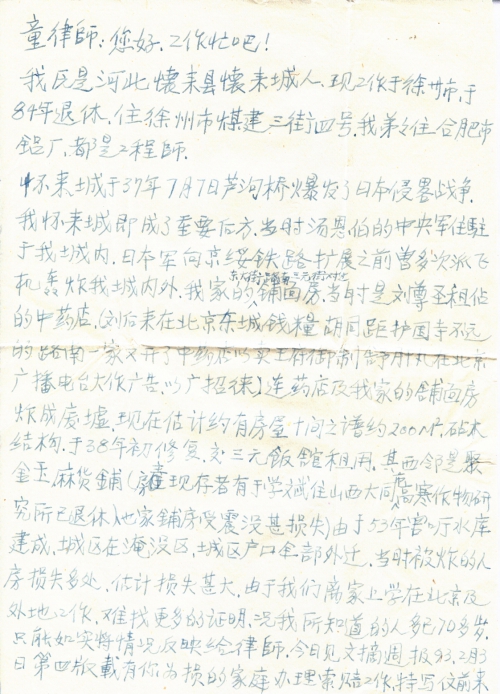 童律師：您好，工作忙吧！
我氏是河北懷来县懷来城人，现工作于徐州市，于
84年退休，住徐州市煤建三街四号，我弟之住合肥市
铝厂，都是工程師．
怀来城于37年7月7日芦沟桥爆发了日本侵畧战争，
我怀来城即成了重要后方，当时汤恩伯的中央军住駐
于我城内，日本军向京绥铁路扩展之前曾多次派飞
机轰炸我城内外，我家的铺面房，当时是刘尊圣租佔
的中药店，(刘后来在北京东城钱糧胡同距护国寺不远
的路南一家又开了中药店以卖 在北京
广播电台大作广告，以广招徕)连药店及我家的舖面房
炸成废墟，现在估计约有房屋十间之谱约200㎡，砖木
结构，于38年初修复，交三元飯舘租用，其西邻是聚
金玉，麻货鋪(房 现存者有于学斌住山西大同高寒作物研
究所已退休)他家鋪房受震没甚损失)由于53年官厅水库
建成，城区在淹没区，城区户口全部外迁，当时被炸的人
房损失多处，估计损失甚大，由于我们离家上学在北京及
外地工作，难找更多的证明，况我所知道的人多已70多岁，
只能如实将情况反映给律师，今日见文摘週报93.2月3
日第四版載有你为损的家庭办理索赔工作，特写仪前来